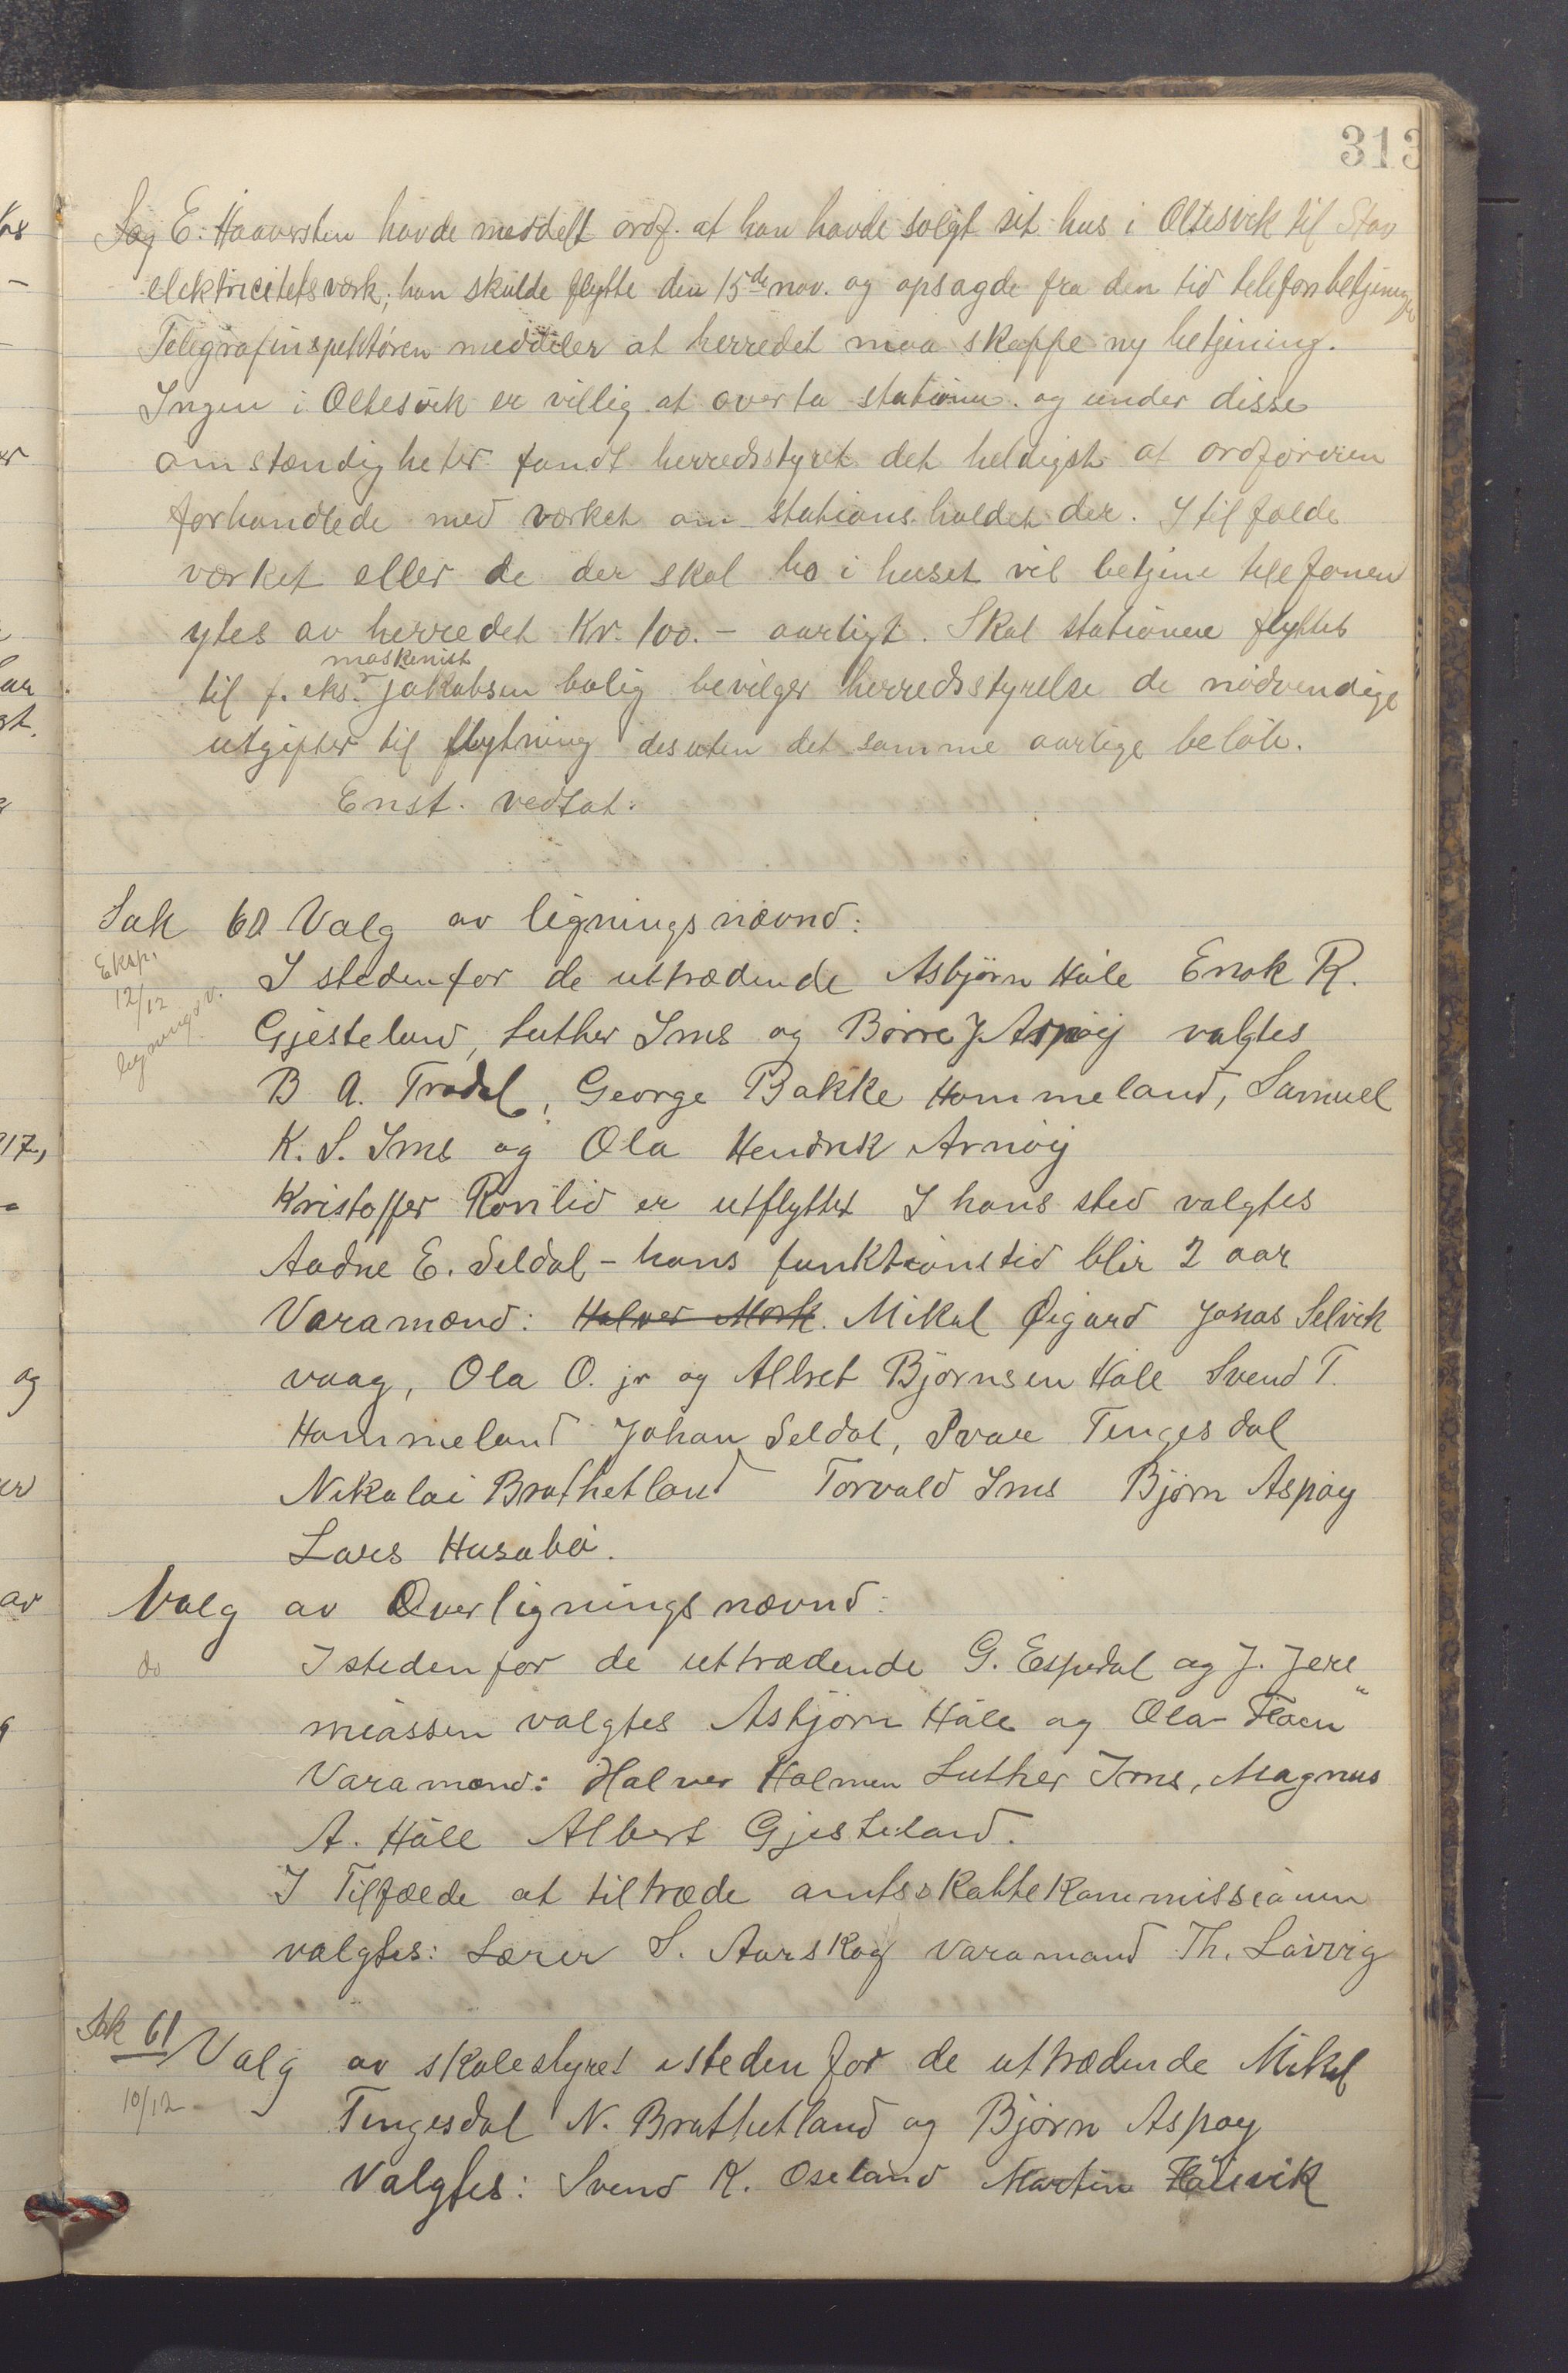 313
E. Haaversten havde meddelt ordf. at han havde solgt sit hus i Oltesvik til Stav
elektricitetsverk; han skulde flytte den 15de nov. og opsagde fra den tid telefonbetjeningen
Telegrafinspektören meddeler at herredet maa skaffe ny betjening.
Ingen i Oltesvik er villig at overta stationen. og under disse
omstændigheter fandt herredsstyret det heldigst at ordföreren
forhandlede med verket om stationsholdet der. I tilfælde
verket eller de der skal bo i huset vil betjene telefonen
ytes av herredet Kr. 100.- aarligt. Skal stationen flyttes
maskinist
til f. eks. Jakobsen bolig bevilger herredsstyrelse de nödvendige
utgifter til flytning desuten det samme aarlige belöb.
Enst. vedtat.
Sak 60 Valg av ligningsnævnd:
Eksp.
12/12
ligningsv.
I stedenfor de uttrædende Asbjörn Håle Enok R.
Gjesteland, Luther Ims og Börre J. Arnöy valgtes
B A. Tradal, George Bakke Hommeland, Samuel
K. S. Ims og Ola Hendrik Arnöy
Kristoffer Rovilid er utflyttet I hans sted valgtes
Aadne E. Seldal - hans funktionstid blir 2 aar
Varamænd: Halver Mork. Mikal Øigard Jonas Selvik
vaag, Ola O. jr og Albret Björnsen Håle Svend T.
Hommeland Johan Seldal, Ivar Tengesdal
Nikolai Brathetland Torvald Ims Björn Aspöy
Lars Husabö.
Valg av Overligningsnævnd:
do
Istedenfor de uttrædende G. Espedal og J. Jere"
miassen valgtes Asbjörn Håle og Ola Floen
Varamænd: Halver Holmen Luther Ims, Magnus
A. Håle Albert Gjesteland.
I Tilfælde at tiltræde amtsskattekommissionen
valgtes: Lærer S. Aarskog varamand Th. Lavvig
Sak 61
Valg av skolestyret isteden for de uttrædende Mikal
10/12
Tengesdal N. Brathetland og Björn Aspöy
Valgtes: Svend K. Oseland Martin Hålevik